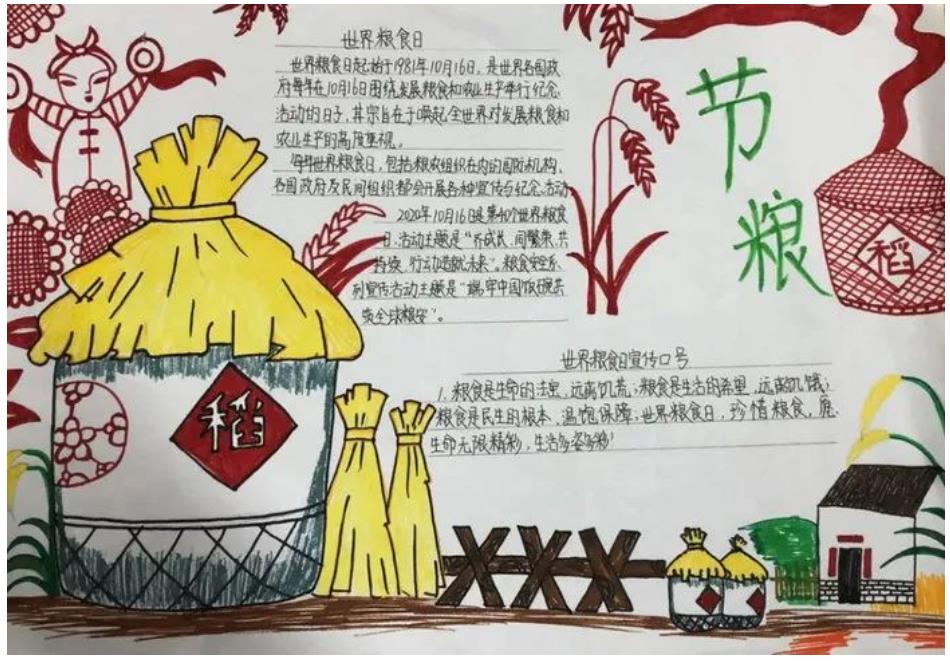 世界粮食日
世界粮食日起始于1981年10月16日，是世界各国政
府每年在10月16日围绕发展粮食和农业生产举行纪念
活动的日子，其宗旨在于唤起全世界对发展粮食和
农业生产的高度重视。
每年世界粮食日，包括粮农组织在内的国际机构、
各国政府及民间组织都会开展各种宣传与纪念活动
2020年10月16日是第40个世界粮食
日，活动主题是“齐成长、同繁荣、共
持续，行动造就未来”。粮食安全系
列宣传活动主题是“端牢中国饭碗共
筑全球粮安”。
节
粮
稻
世界粮食日宣传口号
1、粮食是生命的法宝，远离饥荒；粮食是生活的希望，远离饥饿；
粮食是民生的根本，温饱保障；世界粮食日，珍惜粮食，愿
生命无限精彩，生活多姿多彩！
稻